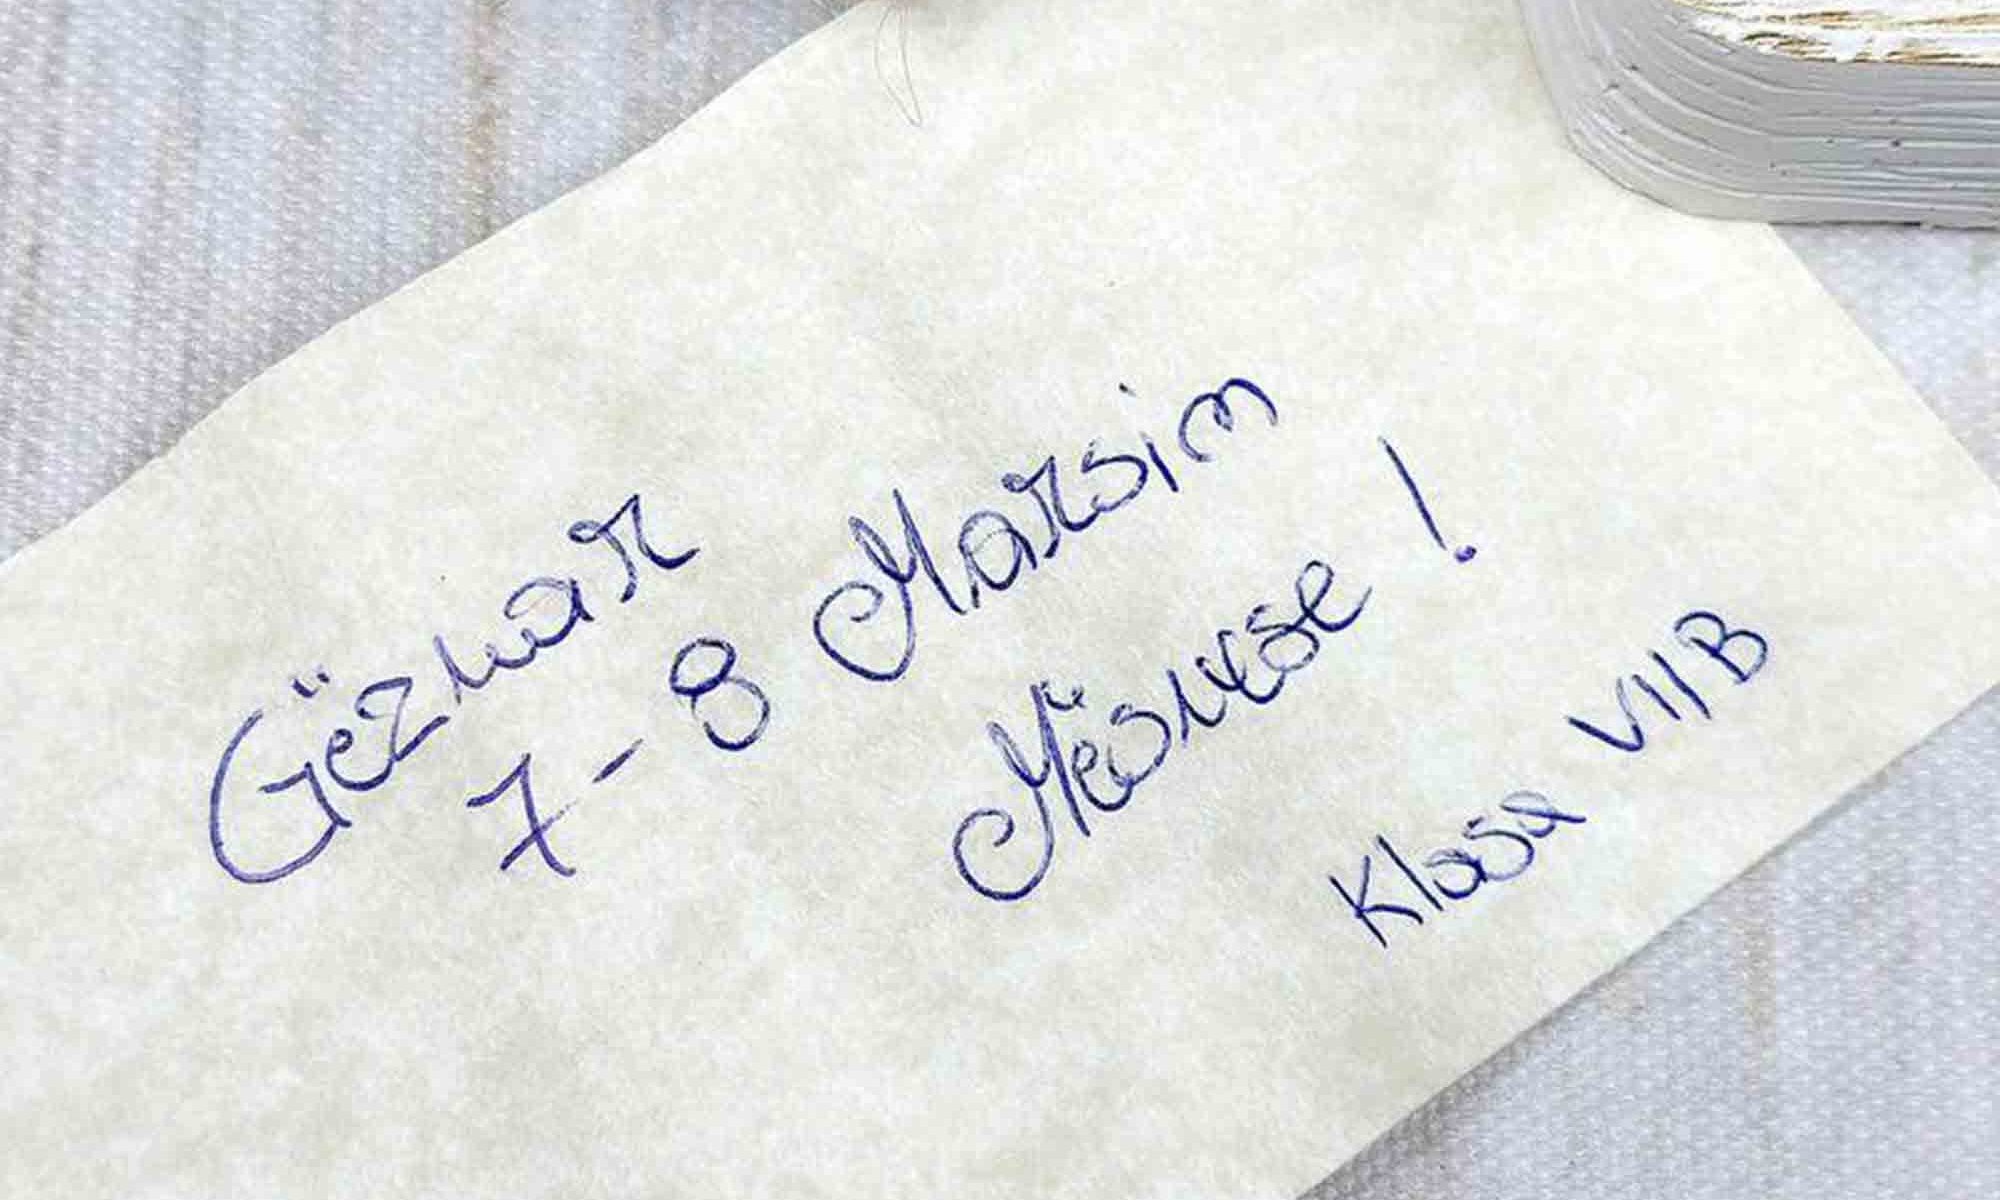 Gëzuar
7-8 Marsin
Mësuese!
Klasa VII B